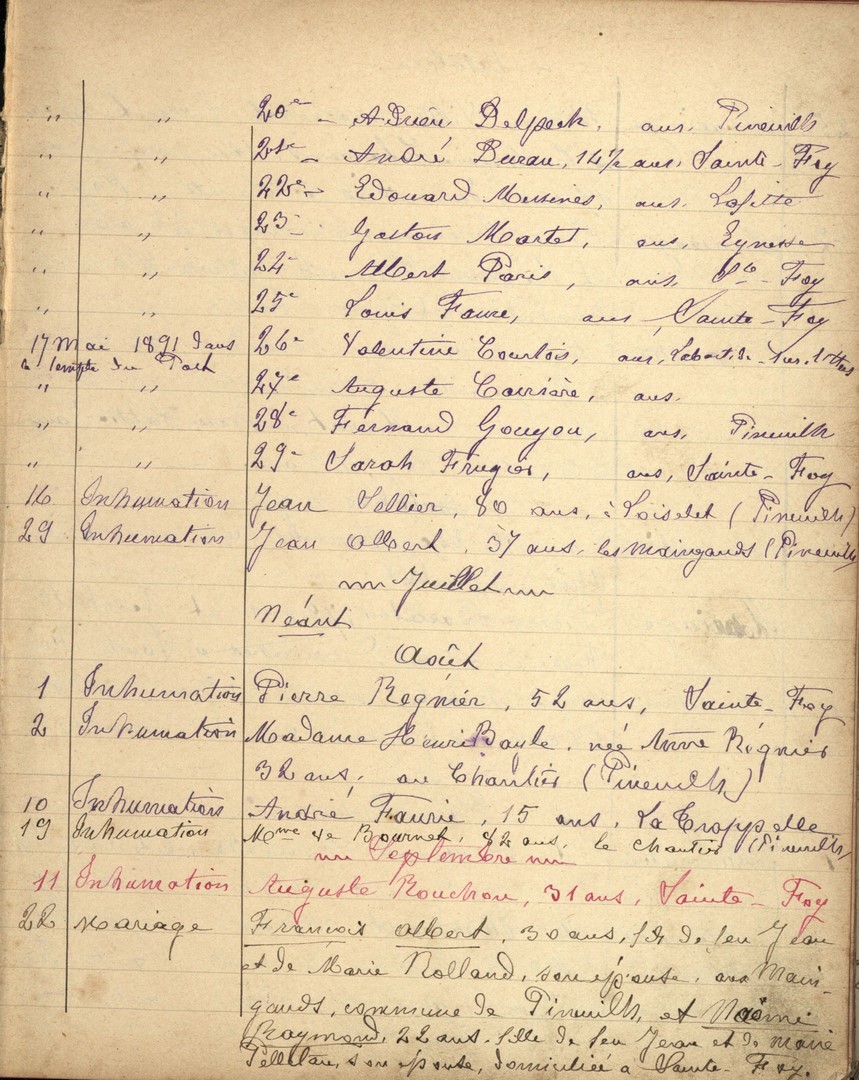 " " 20e - Adrien Delpeck, ans, Pineuilh
" " 21e - André Buzau, 14½ ans, Sainte-Foy
" " 22e - Edouard Messines, ans, Lafitte
" " 23 - Gaston Martet, ans, Eynesse
" " 24 Albert Paris, ans, Ste-Foy
" " 25e Louis Faure, ans Sainte-Foy
17 Mai 1891 dans 26e Valentine Courtois, ans,
le temple du Port
" " 27e Auguste Carrière, ans.
" " 28e Fernand Gouyou, ans, Pineuilh
" " 29e Sarah Frugier, ans, Sainte-Foy
16 Inhumation Jean Sellier, 80 ans, à Loiselet (Pineuilh)
29 Inhumation Jean Albert, 57 ans, les Maingauds (Pineuilh)
Juillet
Néant
Août
1 Inhumation Pierre Régnier, 52 ans, Sainte-Foy
2 Inhumation Madame Henri Bayle, née Anne Régnier
32 ans, au Chantier (Pineuilh)
10 Inhumation André Faurie, 15 ans, La Trappelle
19 Inhumation Mme Bournet, 82 ans, le Chantier (Pineuilh)
Septembre
11 Inhumation Auguste Rouchon, 31 ans, Sainte-Foy
22 Mariage François Albert, 30 ans, fils de feu Jean
et de Marie Rolland, son épouse, aux Main-
gauds, commune de Pineuilh, et Naömi
Raymond, 22 ans, fille de feu Jean et de Marie
Pelletan, son épouse, domiciliée à Sainte-Foy.